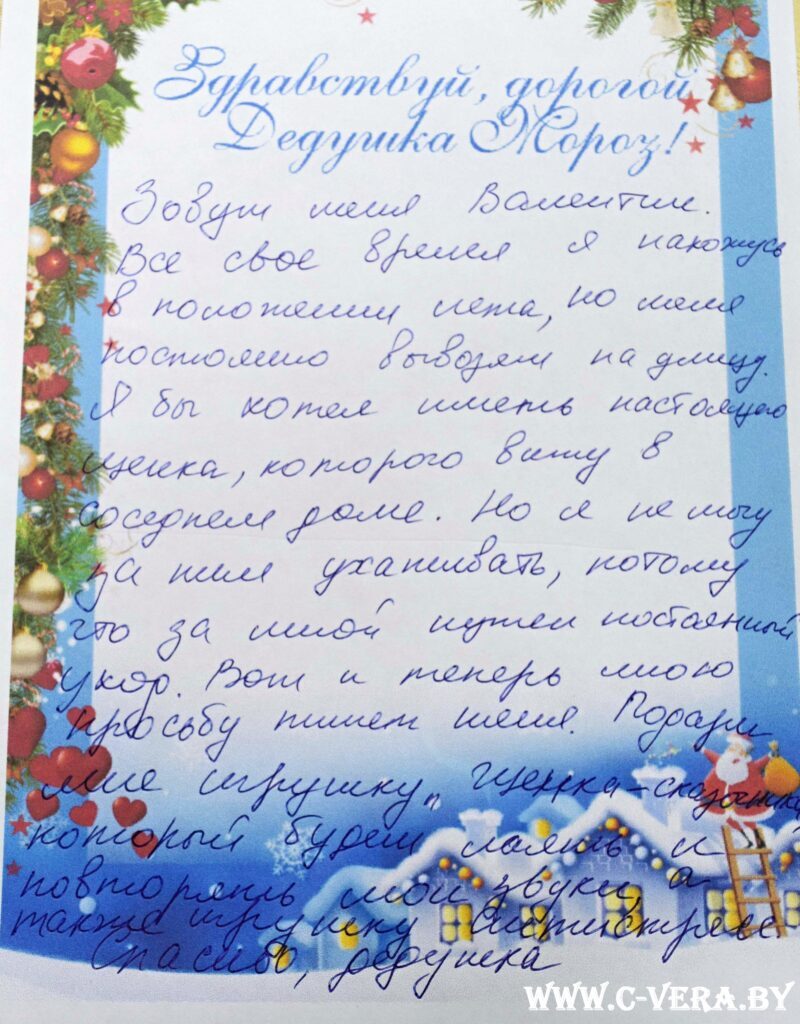 Здравствуй, дорогой
Дедушка Мороз!
Зовут меня Валентин.
Все свое время я нахожусь
в положении лежа, но меня
постоянно вывозят на улицу.
Я бы хотел иметь настоящего
щенка, которого вижу в
соседнем доме. Но я не могу
за ним ухаживать, потому
что за мной нужен постоянный
уход. Вот и теперь мою
просьбу пишет няня. Подари
мне игрушку, щенка-
который будет лаять и
повторять мои звуки, а
также игрушку
Спасибо, дедушка
WWW.C-VERA.BY